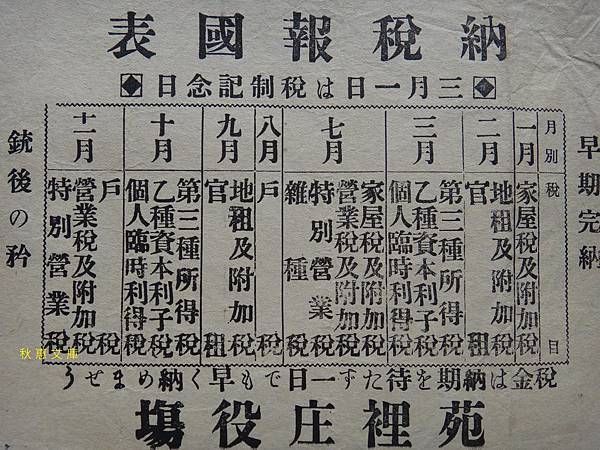 納税報國表
◆三月一日は税制記念日◆
早期完納
月別
税目
一月
家屋税及附加税
二月
地租及附加税
官租
三月
第三種所得税
乙種資本利子税
個人臨時利得税
七月
家屋税及附加税
營業税及附加税
特別營業税
雜種税
八月
戸税
九月
地租及附加税
官租
十月
第三種所得税
乙種資本利子税
個人臨時利得税
十一月
戸税
營業税及附加税
特別營業税
銃後の矜
税金は納期を待たず一日でも早く納めませう
苑裡庄役場
秋惠文庫